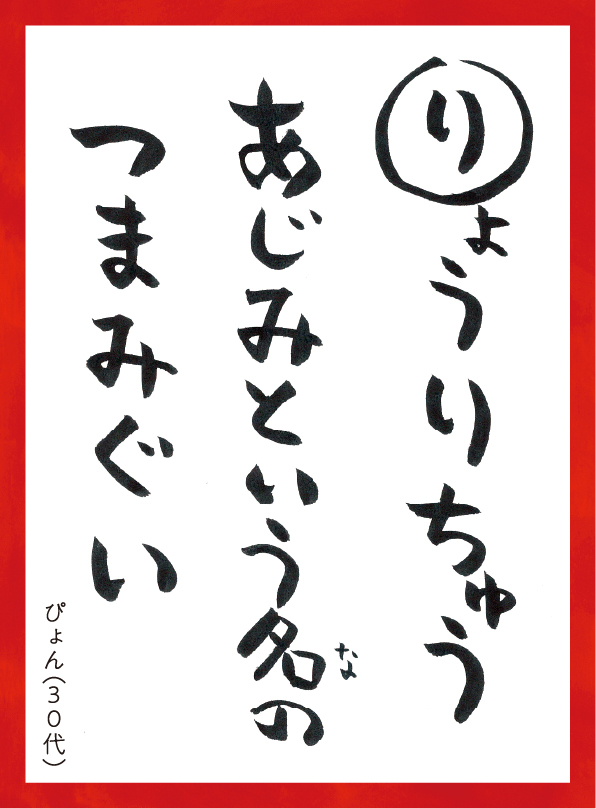 りょうりちゅう
あじみという名の
な
つまみぐい
ぴょん(30代)